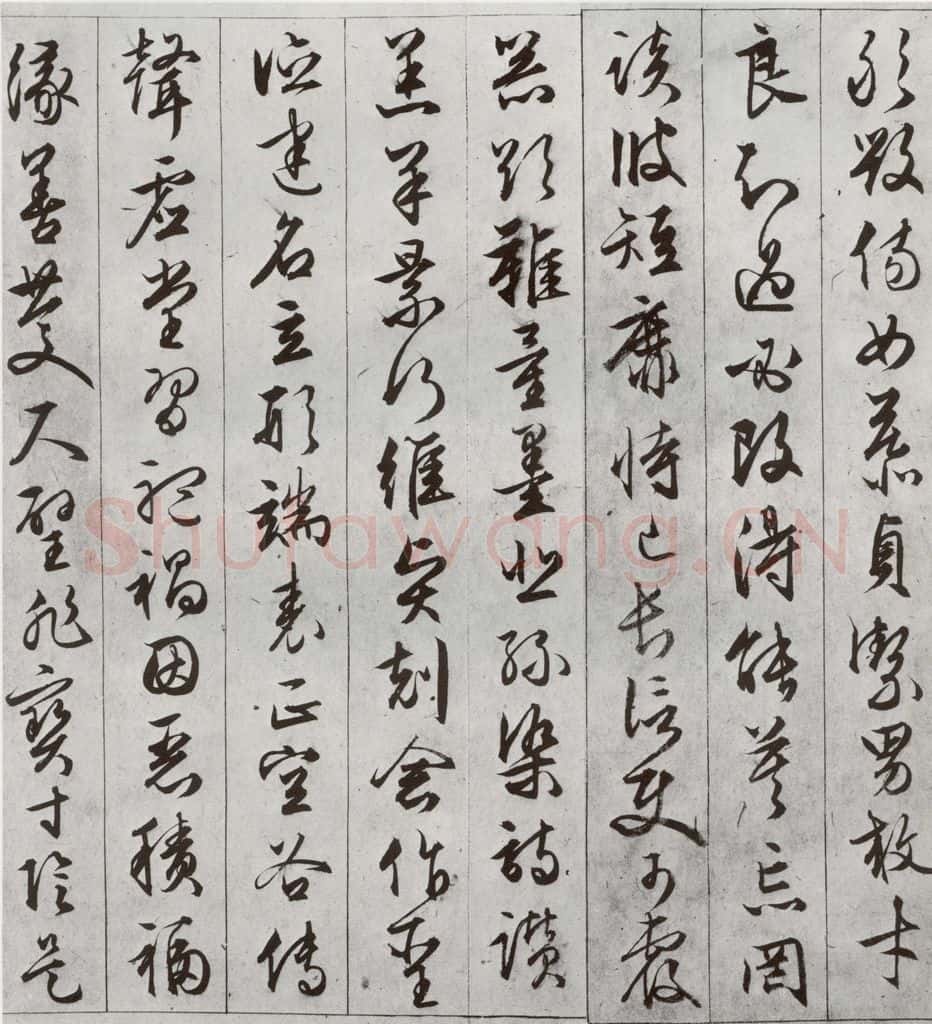 敢毀傷女慕貞潔男效才
良知過必改得能莫忘罔
談彼短靡恃己長信使可覆
器欲難量墨悲絲染詩讚
羔羊景行維賢剋念作聖
德建名立形端表正空谷傳
聲虛堂習聽禍因惡積福
緣善慶尺璧非寶寸陰是
Shufawang.CN